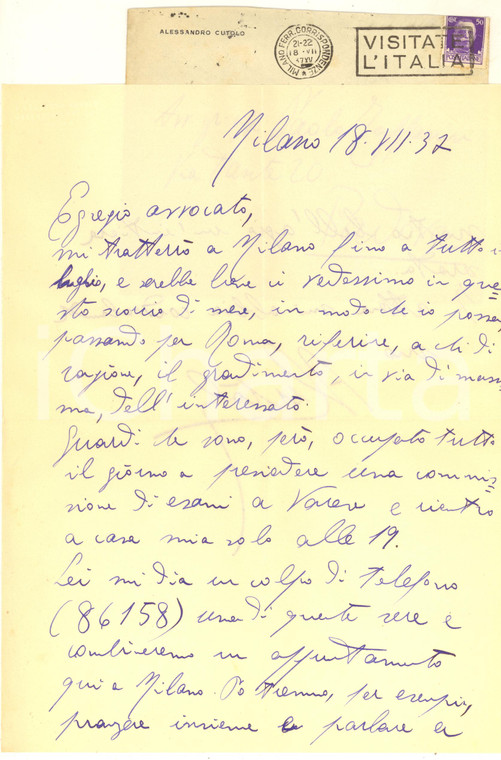 ALESSANDRO CUTOLO
MILANO FERR. CORRISPONDENZE
21-22
18 VII
37 XV
VISITATE
L'ITALIA
50
Milano 18.VII.37
Egregio avvocato,
mi tratterrò a Milano fino a tutto il
luglio, e sarebbe bene ci vedessimo in que=
sto scorcio di mese, in modo che io possa
passando per Roma, riferire, a chi di
ragione, il gradimento, in via di mass
ma, dell'interessato.
Guardi che sono, però, occupato tutto
il giorno a presiedere una commis=
sione di esami a Varese e rientro
a casa mia solo alle 19.
Lei mi dia un colpo di telefono
(86158) una di queste sere e
combineremo un appuntamento
qui a Milano. Potremmo, per esempio,
pranzare insieme e parlare a